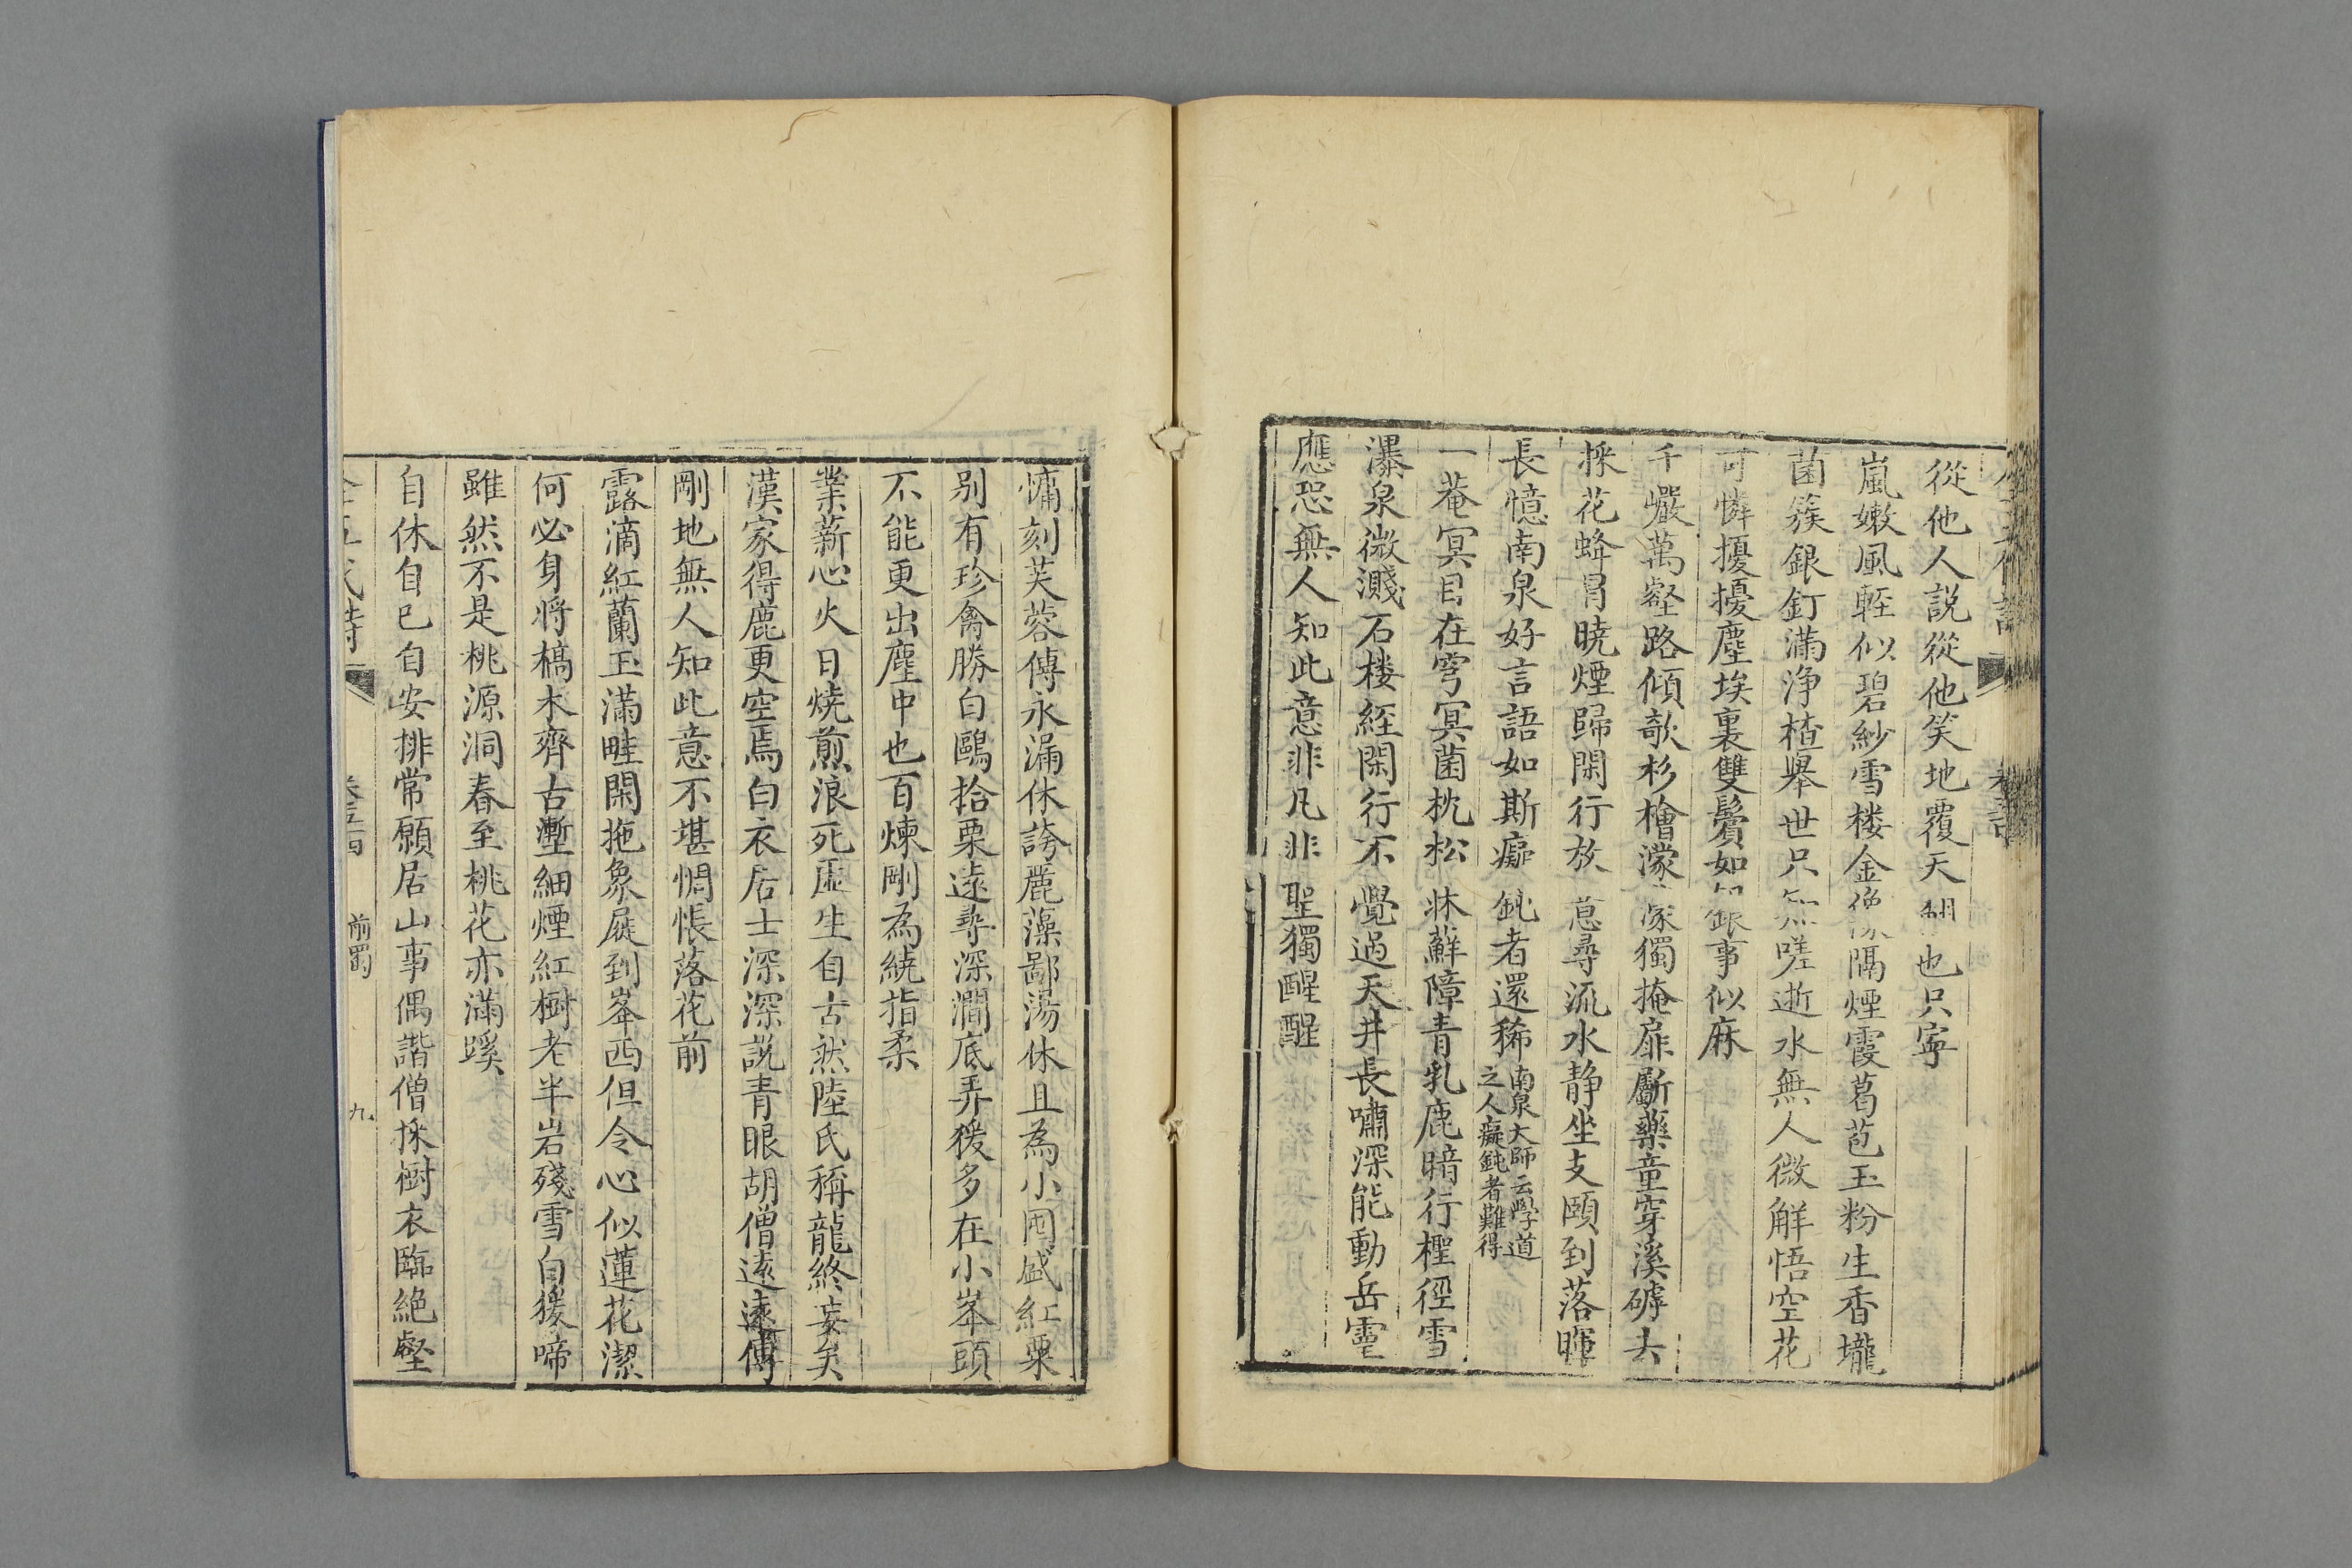 從他人說從他笑地覆天翻也只寧
嵐嫩風輊似碧紗雪楼金像隔煙霞葛苞玉粉生香壠
菌簇銀釘滿浄楂舉世只無嗟逝水無人微解悟空花
可憐擾擾塵埃裏雙鬢如銀事似麻
千巖萬壑路傾欹杉檜濛濛獨掩扉劚藥童穿溪罅去
採花蜂冐暁煙歸閑行放意尋流水静坐支頤到落暉
長憶南泉好言語如斯癡鈍者還稀南泉大師云學道之人癡鈍者難得
一菴冥目在穹冥菌枕松牀蘚障青乳鹿暗行檉徑雪
瀑泉微濺石楼經閑行不覺過天井長嘯深能動岳靈
應恐無人知此意非凡非聖獨醒醒
慵刻芙蓉傳永漏休誇麗藻鄙湯休且為小囤盛紅粟
別有珍禽勝白鷗拾栗遠尋深澗底弄猨多在小峯頭
不能更出塵中也百煉剛為繞指柔
業薪心火日燒煎浪死虛生自古然陸氏稱龍終妄矣
漢家得鹿更空焉白衣居士深深說青眼胡僧遠遠傳
剛地無人知此意不堪惆悵落花前
露滴紅蘭玉滿畦閑拖象屣到峯西但令心似蓮花潔
何必身將槁木齊古壍細煙紅樹老半岩殘雪白猨啼
雖然不是桃源洞春至桃花亦滿蹊
自休自已自安排常願居山事偶諧僧採樹衣臨絶壑
全五代詩 卷五十四 前蜀 九